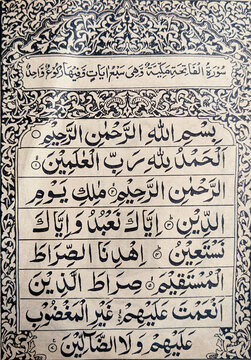 سُورَةُ الْفَاتِحَةِ مَكِّيَّةٌ وَهِيَ سَبْعُ اٰيَاتٍ وَفِيهَا رُكُوعٌ وَاحِدٌ
بِسْمِ اللهِ الرَّحْمٰنِ الرَّحِيْمِ
اَلْحَمْدُ لِلّٰهِ رَبِّ الْعٰلَمِيْنَ
الرَّحْمٰنِ الرَّحِيْمِ مٰلِكِ يَوْمِ
الدِّيْنِ اِيَّاكَ نَعْبُدُ وَاِيَّاكَ
نَسْتَعِيْنُ اِهْدِنَا الصِّرَاطَ
الْمُسْتَقِيْمَ صِرَاطَ الَّذِيْنَ
اَنْعَمْتَ عَلَيْهِمْ غَيْرِ الْمَغْضُوْبِ
عَلَيْهِمْ وَلَا الضَّآلِّيْنَ